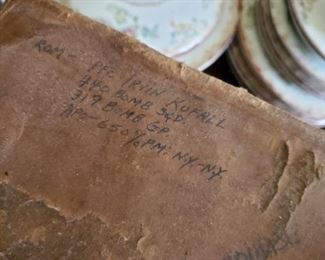 ROM - PFC. IRVIN KUFALL
440 BOMB SQD.
319 BOMB GP.
APO - 650 % P.M. N.Y. - N.Y.